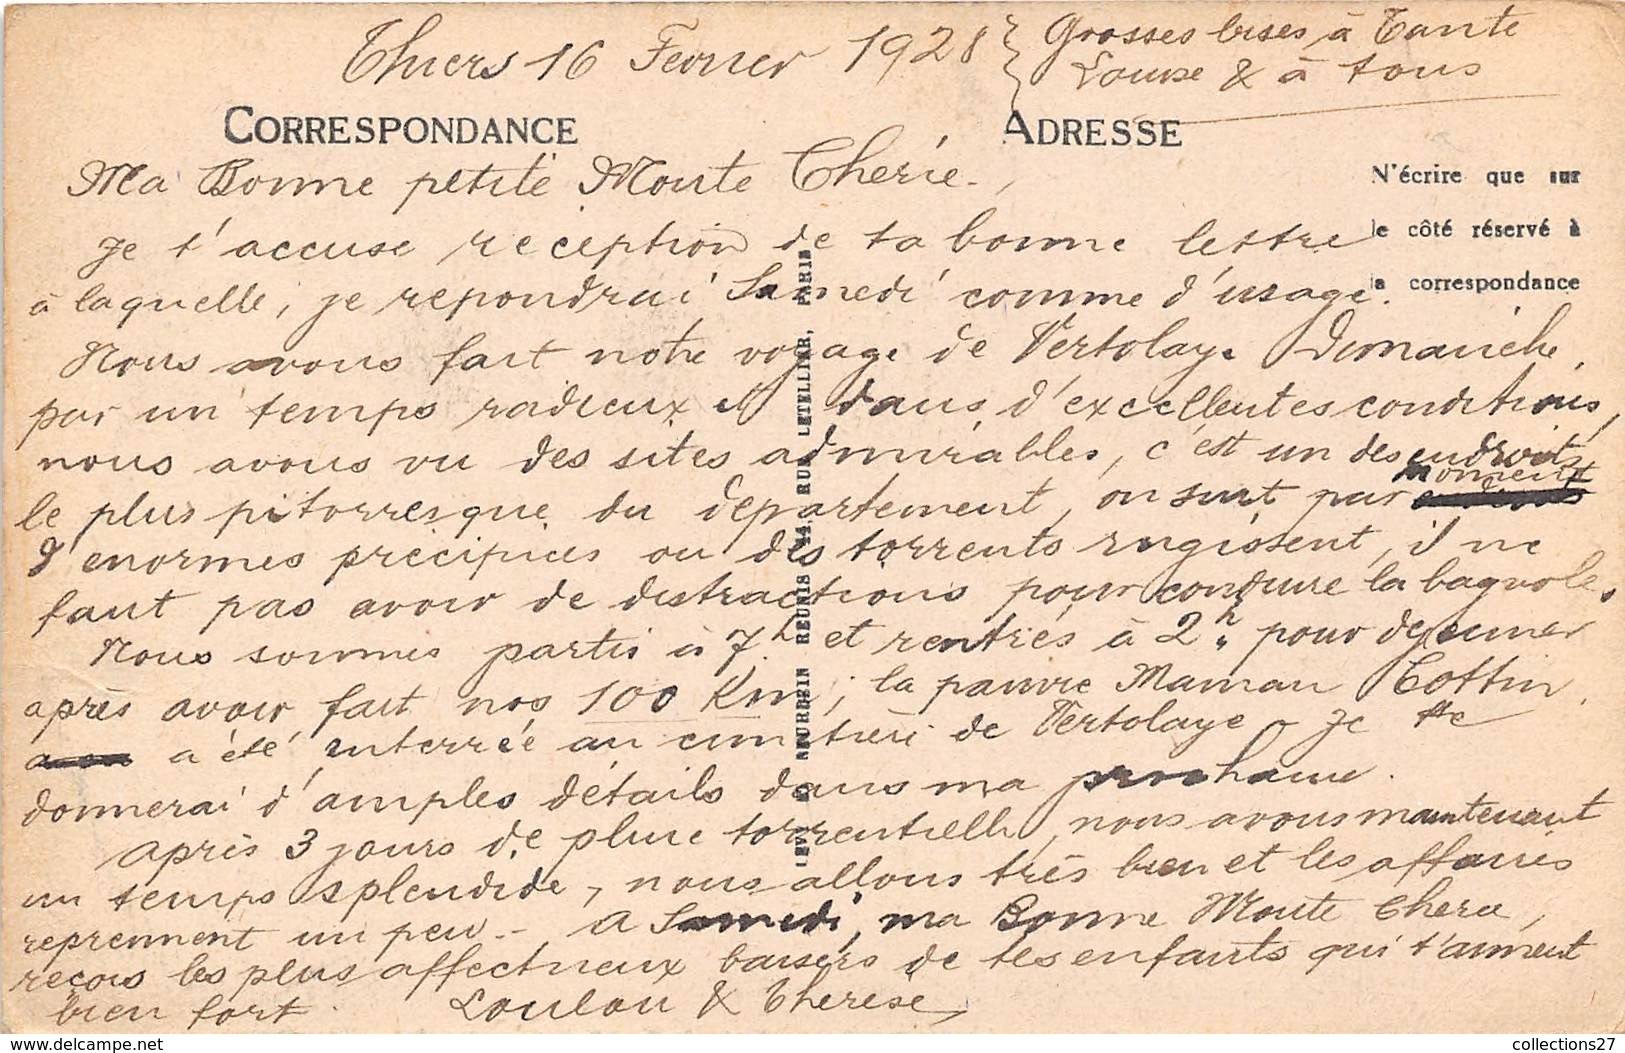 Thiers 16 Fevrier 1928
Grosses bises à Tante
Louise & à tous
CORRESPONDANCE
ADRESSE
N'écrire que sur
le côté réservé à
la correspondance
Ma Bonne petite Moute Cherie.,
Je t'accuse reception de ta bonne lettre
à laquelle, je repondrai Samedi comme d'usage.
Nous avons fait notre voyage de Vertolaye Dimanche,
par un temps radieux et dans d'excellentes conditions,
nous avons vu des sites admirables, c'est un des endroits
le plus pittorresque du departement, on suit par moment
d'enormes précipices ou des torrents rugissent, il ne
faut pas avoir de distractions pour conduire la bagnole.
Nous sommes partis à 7h et rentrés à 2h, pour dejeuner
après avoir fait nos 100 Km; la pauvre Maman Cottin
a été enterrée au cimetière de Vertolaye - Je te
donnerai d'amples détails dans ma prochaine.
Après 3 jours de pluie torrentielle, nous avons maintenant
un temps splendide, nous allons très bien et les affaires
reprennent un peu.- A Samedi, ma Bonne Moute Cherie,
reçois les plus affectueux baisers de tes enfants qui t'aiment
bien fort. Loulou & Therese
LEVY & NEURDEIN REUNIS 44, RUE LETELLIER, PARIS
collections27